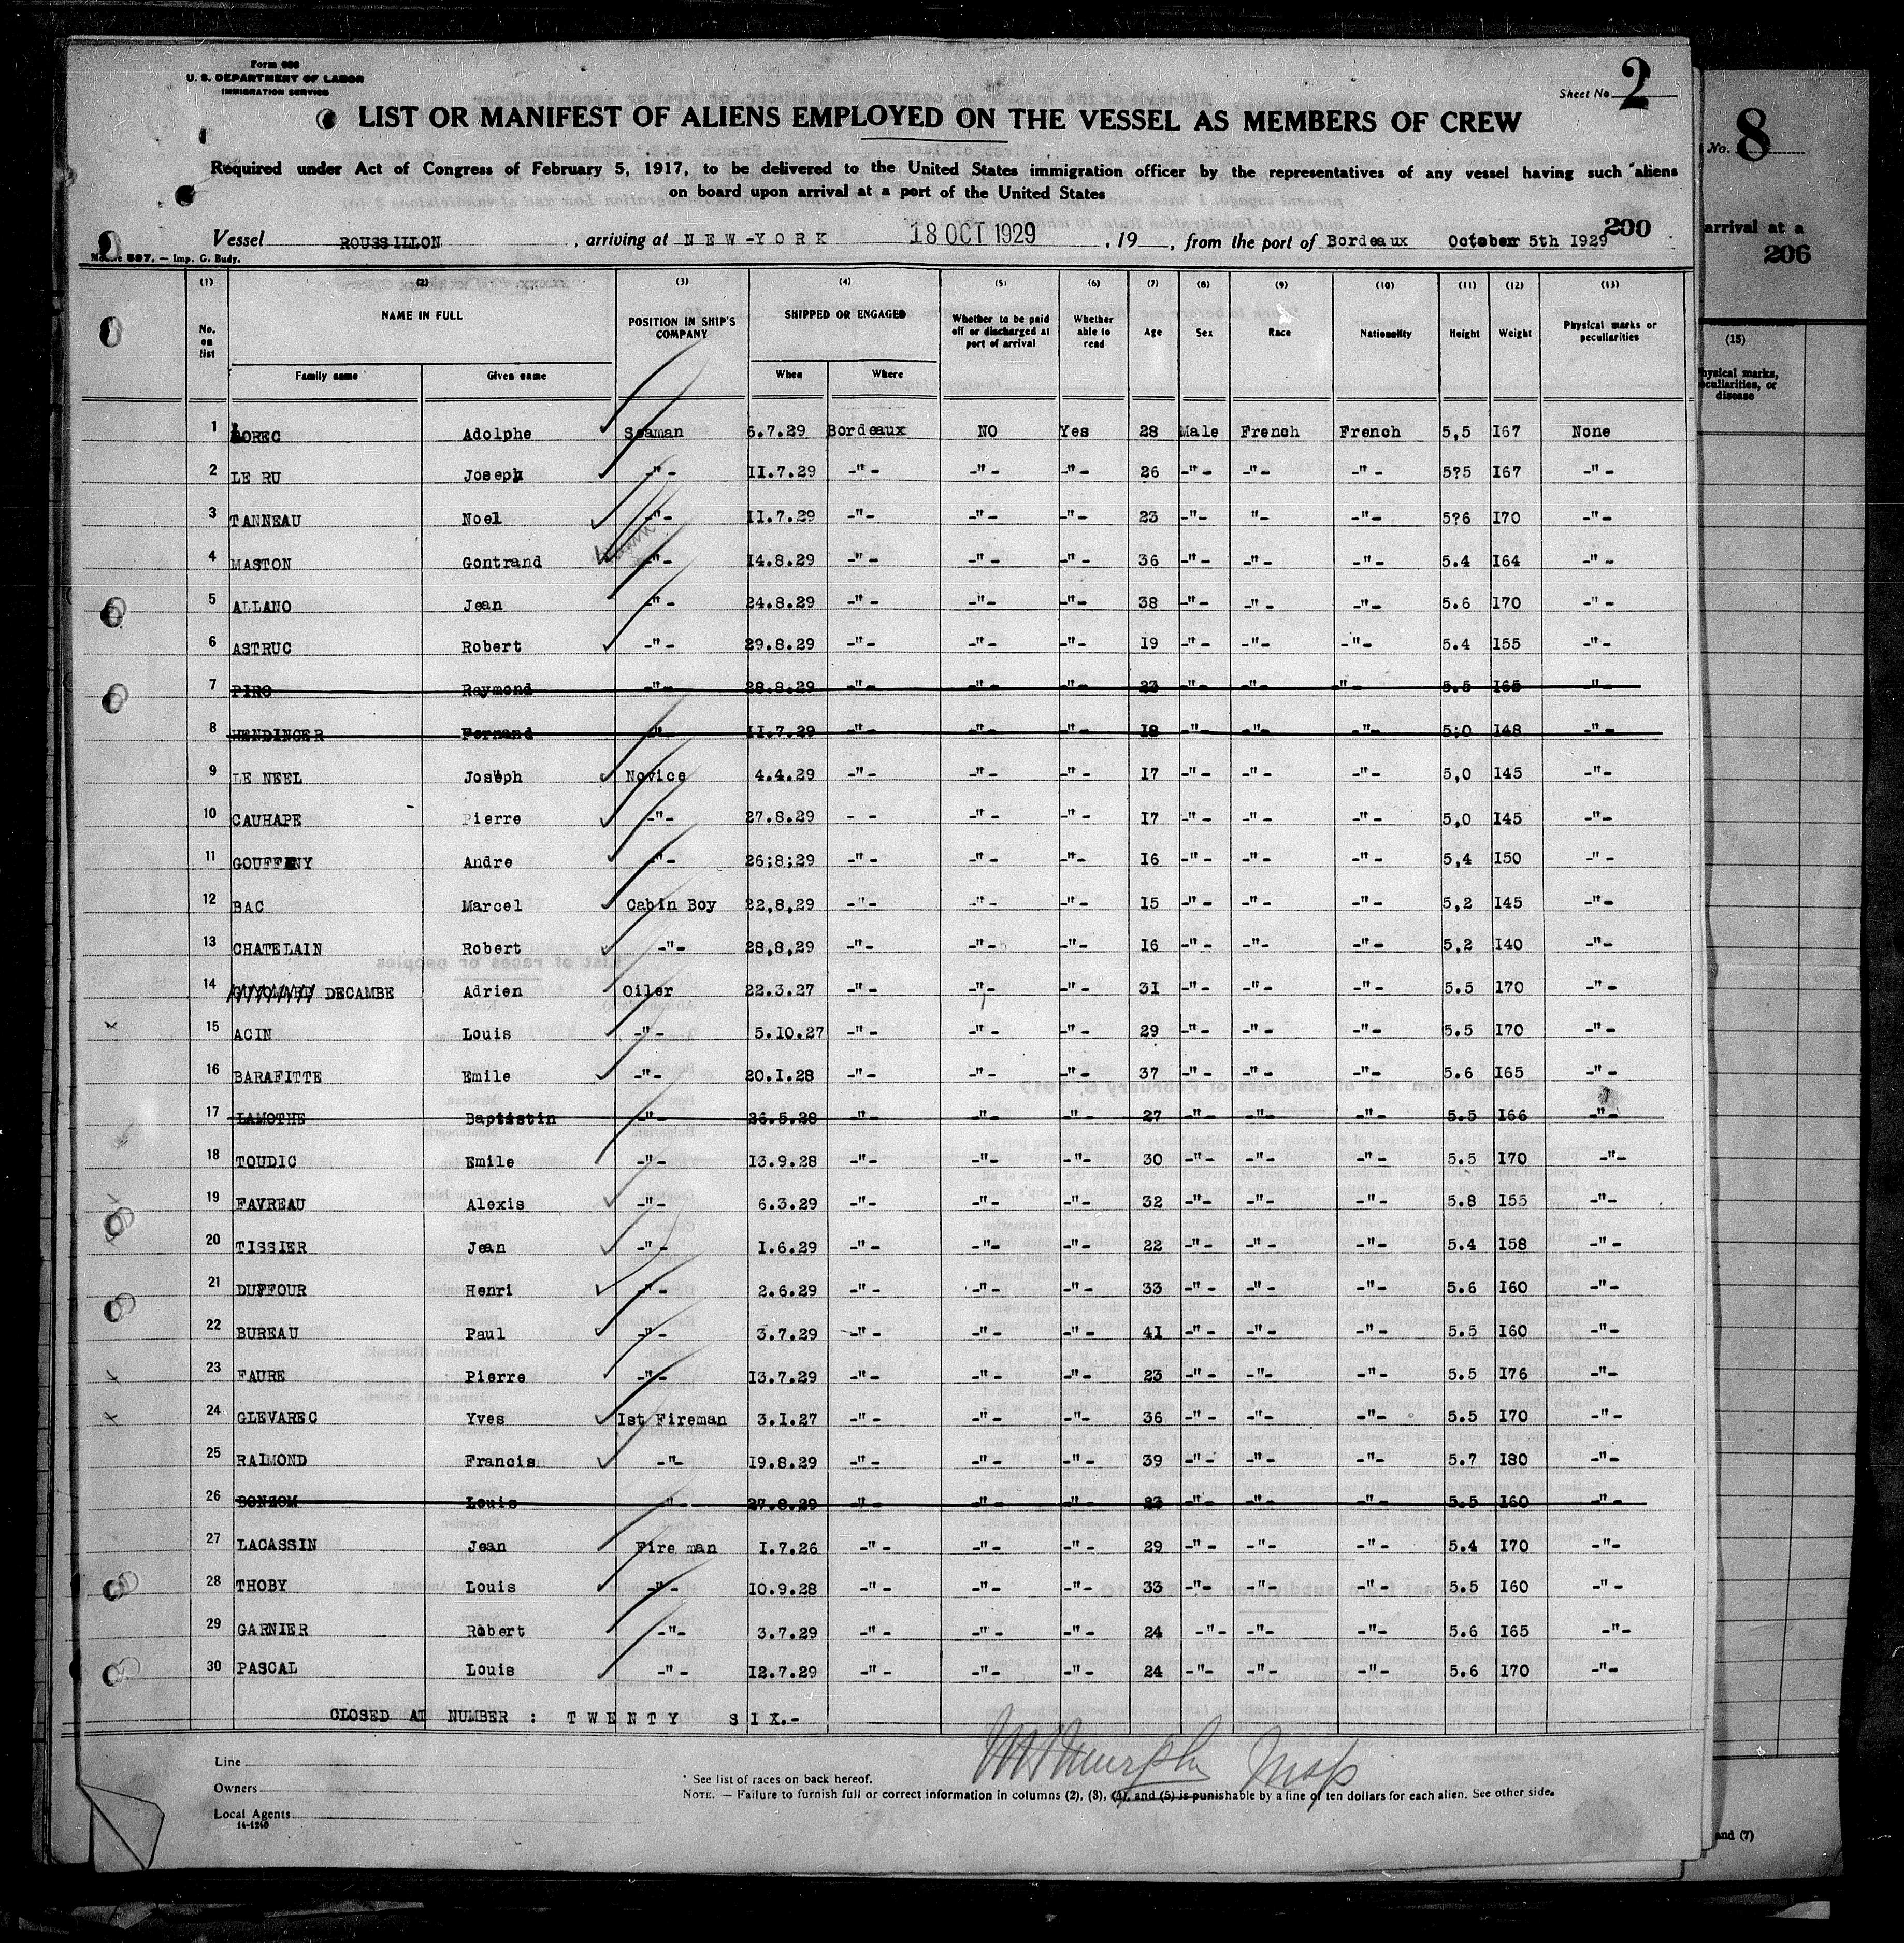 Form 689
U. S. DEPARTMENT OF LABOR
IMMIGRATION SERVICE
Sheet No. 2
LIST OR MANIFEST OF ALIENS EMPLOYED ON THE VESSEL AS MEMBERS OF CREW
Required under Act of Congress of February 5, 1917, to be delivered to the United States immigration officer by the representatives of any vessel having such aliens
on board upon arrival at a port of the United States
200
Vessel ROUSSILLON, arriving at NEW-YORK 18 OCT 1929, 19, from the port of Bordeaux October 5th 1929
597. — Imp. G. Budy.
(1) (2) (3) (4) (5) (6) (7) (8) (9) (10) (11) (12) (13)
No. on list NAME IN FULL POSITION IN SHIP'S COMPANY SHIPPED OR ENGAGED Whether to be paid off or discharged at port of arrival Whether able to read Age Sex Race Nationality Height Weight Physical marks or peculiarities
Family name Given name When Where
1 LOREC Adolphe Seaman 6.7.29 Bordeaux NO Yes 28 Male French French 5,5 I67 None
2 LE RU Joseph -"- II.7.29 -"- -"- -"- 26 -"- -"- -"- 5?5 I67 -"-
3 TANNEAU Noel -"- II.7.29 -"- -"- -"- 23 -"- "- -"- 5?6 I70 -"-
4 MASTON Gontrand -"- I4.8.29 -"- -"- -"- 36 -"- -"- -"- 5.4 I64 -"-
5 ALLANO Jean -"- 24.8.29 -"- -"- -"- 38 -"- -"- -"- 5.6 I70 -"-
6 ASTRUC Robert -"- 29.8.29 -"- -"- -"- I9 -"- -"- -"- 5.4 I55 -"-
7 PIRO Raymond -"- 28.8.29 -"- -"- -"- 23 -"- -"- "- 5.5 I65 -"-
8 WENDINGER Fernand -"- II.7.29 -"- -"- -"- I8 -"- -"- -"- 5;0 I48 -"-
9 LE NEEL Joseph Novice 4.4.29 -"- -"- -"- I7 -"- -"- -"- 5,0 I45 -"-
10 CAUHAPE Pierre -"- 27.8.29 - - -"- -"- I7 -"- -"- -"- 5,0 I45 -"-
11 Andre -"- 26;8;29 -"- -"- -"- I6 -"- -"- -"- 5,4 I50 -"-
12 BAC Marcel Cabin Boy 22,8,29 -"- -"- -"- I5 -"- -"- -"- 5,2 I45 -"-
13 CHATELAIN Robert -"- 28,8,29 -"- -"- -"- I6 -"- -"- -"- 5,2 I40 -"-
14 DECAMBE Adrien Oiler 22.3.27 -"- -"- -"- 3I -"- -"- -"- 5.5 I70 -"-
15 ACIN Louis -"- 5.10.27 -"- -"- -"- 29 -"- -"- -"- 5.5 I70 -"-
16 BARAFITTE Emile -"- 20.I.28 -"- -"- -"- 37 -"- -"- -"- 5.6 I65 -"-
17 LAMOTHE Baptistin -"- 26.5.28 -"- -"- -"- 27 -"- -"- -"- 5.5 I66 -"-
18 TOUDIC Emile -"- I3.9.28 -"- -"- -"- 30 -"- -"- -"- 5.5 I70 -"-
19 FAVREAU Alexis -"- 6.3.29 -"- -"- -"- 32 -"- -"- -"- 5.8 I55 -"-
20 TISSIER Jean -"- I.6.29 -"- -"- -"- 22 -"- -"- -"- 5.4 I58 -"-
21 DUFFOUR Henri -"- 2.6.29 -"- -"- -"- 33 -"- -"- -"- 5.6 I60 -"-
22 BUREAU Paul -"- 3.7.29 -"- -"- -"- 4I -"- -"- -"- 5.5 I60 -"-
23 FAURE Pierre -"- I3.7.29 -"- -"- -"- 23 -"- -"- -"- 5.5 I76 -"-
24 GLEVAREC Yves Ist Fireman 3.I.27 -"- -"- -"- 36 -"- -"- -"- 5.5 I70 -"-
25 RAIMOND Francis -"- I9.8.29 -"- -"- -"- 39 -"- -"- -"- 5.7 I80 -"-
26 BONZOM Louis -"- 27.8.29 -"- -"- -"- 23 -"- -"- -"- 5.5 I60 -"-
27 LACASSIN Jean Fire man I.7.26 -"- -"- -"- 29 -"- -"- -"- 5.4 I70 -"-
28 THOBY Louis -"- IO.9.28 -"- -"- -"- 33 -"- -"- -"- 5.5 I60 -"-
29 GARNIER Robert -"- 3.7.29 -"- -"- -"- 24 -"- -"- -"- 5.6 I65 -"-
30 PASCAL Louis -"- I2.7.29 -"- -"- -"- 24 -"- -"- -"- 5.6 I70 -"-
CLOSED AT NUMBER : TWENTY SIX.-
Line
Owners
Local Agents
14-1240
* See list of races on back hereof.
NOTE. — Failure to furnish full or correct information in columns (2), (3), (4), and (5) is punishable by a fine of ten dollars for each alien. See other side.
No. 8
arrival at a
206
(15)
hysical marks,
culiarities, or
disease
and (7)